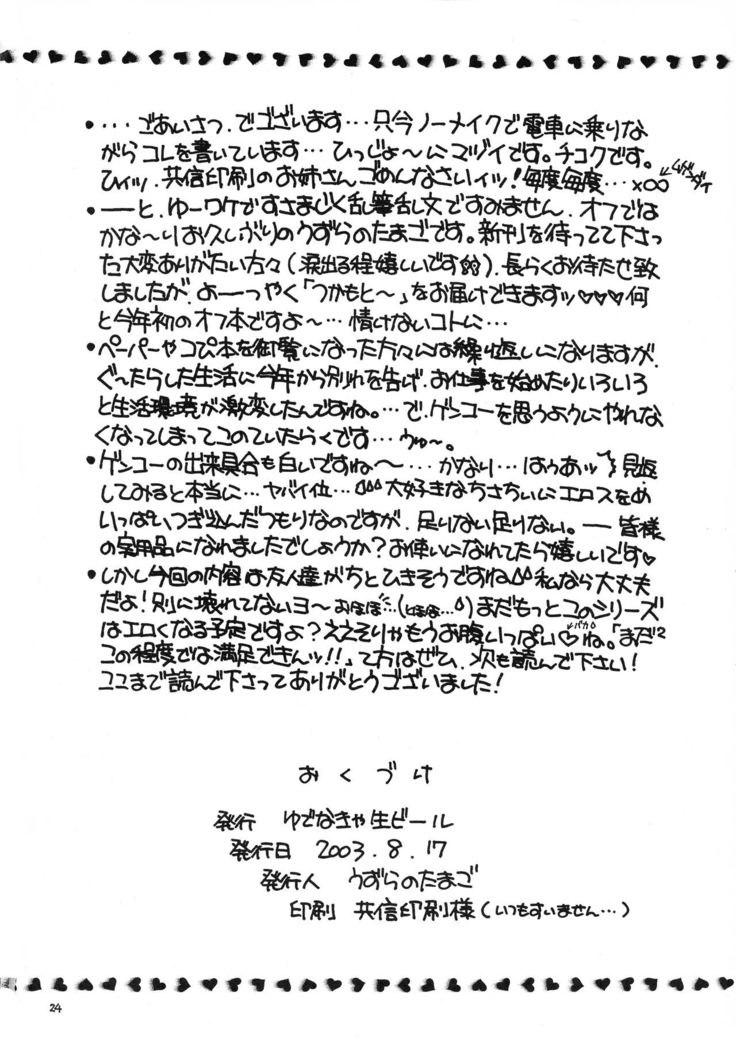 ・・・・ごあいさつ.でございます…只今ノーメイクで電車に乗りな
がらコレを書いています…ひっじょ〜にマヅイです。チコクです。
ひィッ.共信印刷のお姉さんごめんなさいィッ!毎度毎度…×∞
・――と、ゆーワケですさまじく乱筆乱文ですみません.オフでは
かな〜りお久しぶりのうずらのたまごです。新刊を待ってて下さっ
た大変ありがたい方々(涙出る程嬉しいです).長らくお待たせ致
しましたが.よーーつやく「つかもと〜」をお届けできますッ♡♡♡何
と今年初のオフ本ですよ〜…情けないコトに…
・ペーパーやコピ本を御覧になった方々には繰り返しになりますが.
ぐ〜たらした生活に今年から別れを告げ.お仕事を始めたりいろいろ
と生活環境が激変したんですね。…で.ゲンコーを思うようにやれな
くなってしまってこのていたらくです…うゅ〜。
・ゲンコーの出来具合も白いですね〜…かなり…はぅあッ 見返
してみると本当に…ヤバイ位…大好きなちさちぃにエロスをめ
いっぱいつぎ込んだつもりなのですが.足りない足りない。――皆様
の実用品になれましたでしょうか?お使いになれてたら嬉しいです♡
・しかし今回の内容は友人達がちとひきそうですね 私なら大丈夫
だよ!別に壊れてないヨ〜おほほ…(とほほ…)まだもっとこのシリーズ
はエロくなる予定ですよ?ええそりゃもうお腹いっぱい♡ね。「まだ
この程度では満足できんッ!!」て方はぜひ、次も読んで下さい!
ここまで読んで下さってありがとうございました!
おくづけ
発行 ゆでなきゃ生ビール
発行日 2003.8.17
発行人 うずらのたまご
印刷 共信印刷様(いつもすいません…)
24